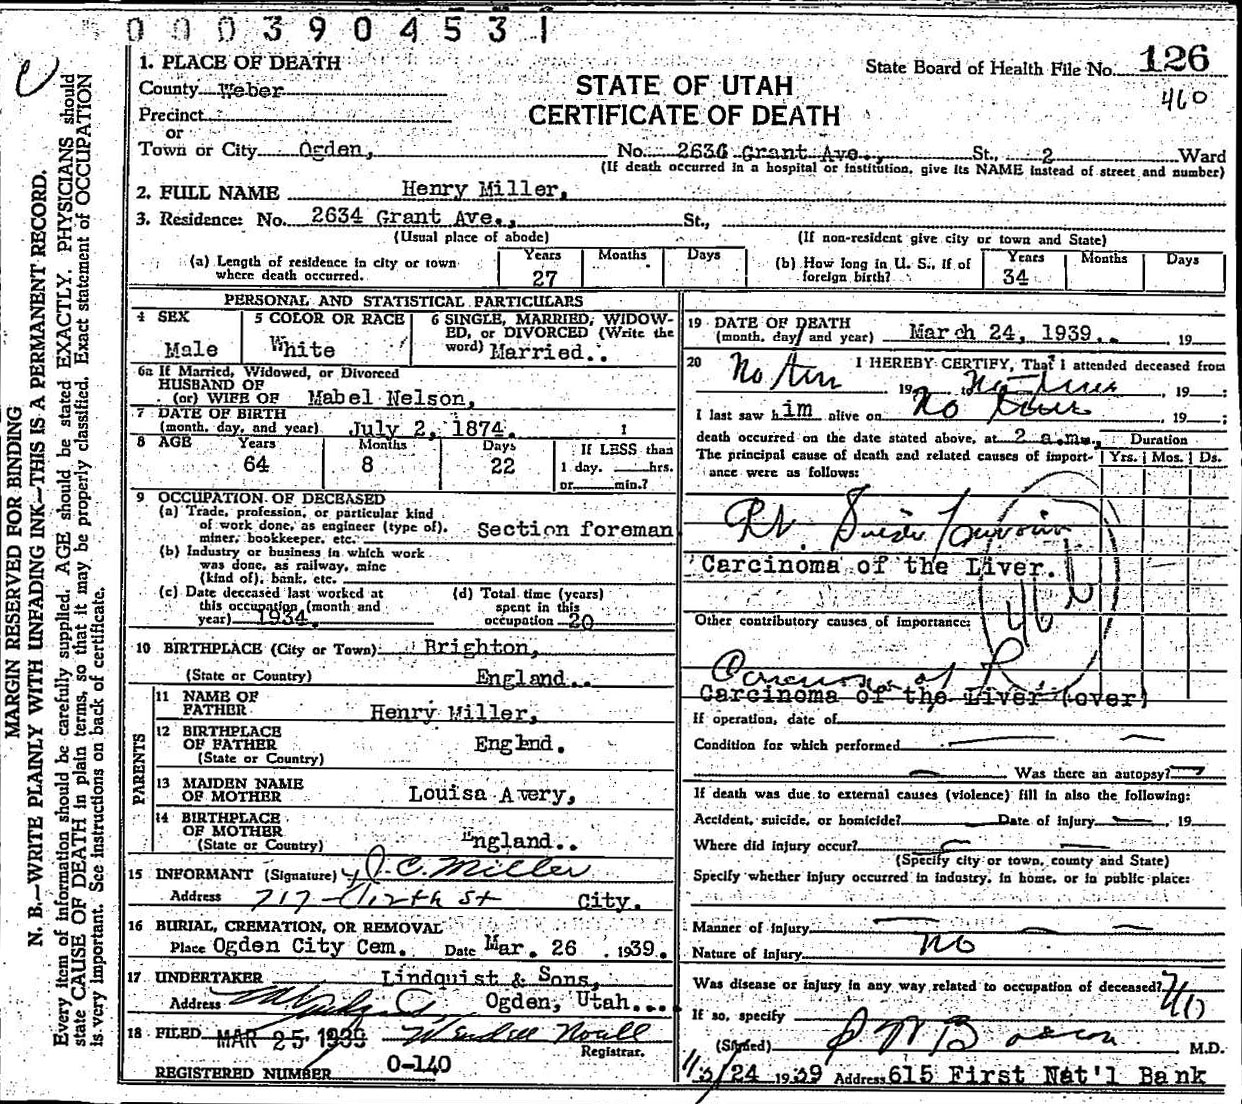 0003904531
1. PLACE OF DEATH
County Weber
Precinct
or
Town or City Ogden,
STATE OF UTAH
CERTIFICATE OF DEATH
State Board of Health File No. 126
460
No. 2636 Grant Ave., St., 2 Ward
(If death occurred in a hospital or institution, give its NAME instead of street and number)
2. FULL NAME Henry Miller,
3. Residence: No. 2634 Grant Ave., St.,
(Usual place of abode) (If non-resident give city or town and State)
(a) Length of residence in city or town where death occurred. Years 27 Months Days
(b) How long in U. S., if of foreign birth? Years 34 Months Days
PERSONAL AND STATISTICAL PARTICULARS
4 SEX Male
5 COLOR OR RACE White
6 SINGLE, MARRIED, WIDOWED, or DIVORCED (Write the word) Married..
6a If Married, Widowed, or Divorced
HUSBAND OF
(or) WIFE OF Mabel Nelson,
7 DATE OF BIRTH
(month, day, and year) July 2, 1874. 1
8 AGE Years 64 Months 8 Days 22
If LESS than
1 day. hrs.
or min.?
9 OCCUPATION OF DECEASED
(a) Trade, profession, or particular kind
of work done, as engineer (type of).
miner, bookkeeper, etc. Section foreman
(b) Industry or business in which work
was done, as railway, mine
(kind of), bank, etc.
(c) Date deceased last worked at
this occupation (month and
year) 1934.
(d) Total time (years)
spent in this
occupation 20
10 BIRTHPLACE (City or Town) Brighton,
(State or Country) England..
PARENTS
11 NAME OF
FATHER Henry Miller,
12 BIRTHPLACE
OF FATHER Englnd.
(State or Country)
13 MAIDEN NAME
OF MOTHER Louisa Avery,
14 BIRTHPLACE
OF MOTHER
(State or Country) England..
15 INFORMANT (Signature) J. C. Miller
Address 717 St City.
16 BURIAL, CREMATION, OR REMOVAL
Place Ogden City Cem. Date Mar. 26 , 1939.
17 UNDERTAKER Lindquist & Sons,
Address Ogden, Utah...
18 FILED MAR 25 1939 Registrar.
REGISTERED NUMBER 0-140
19 DATE OF DEATH
(month, day, and year) March 24, 1939.. , 19
20 I HEREBY CERTIFY, That I attended deceased from
19 to , 19 ;
I last saw him alive on No , 19 ;
death occurred on the date stated above, at 2 a.m., Duration
The principal cause of death and related causes of importance were as follows: Yrs. Mos. Ds.
Carcinoma of the Liver.
Other contributory causes of importance:
Carcinoma of
Carcinoma of the Liver (over)
If operation, date of
Condition for which performed
Was there an autopsy?
If death was due to external causes (violence) fill in also the following:
Accident, suicide, or homicide? Date of injury , 19
Where did injury occur?
(Specify city or town, county and State)
Specify whether injury occurred in industry, in home, or in public place:
Manner of injury
Nature of injury no
Was disease or injury in any way related to occupation of deceased? No
If so, specify
(Signed) M.D.
3/24 1939 Address 615 First Nat'l Bank
MARGIN RESERVED FOR BINDING
N. B.—WRITE PLAINLY WITH UNFADING INK—THIS IS A PERMANENT RECORD.
Every item of information should be carefully supplied. AGE should be stated EXACTLY. PHYSICIANS should
state CAUSE OF DEATH in plain terms, so that it may be properly classified. Exact statement of OCCUPATION
is very important. See instructions on back of certificate.